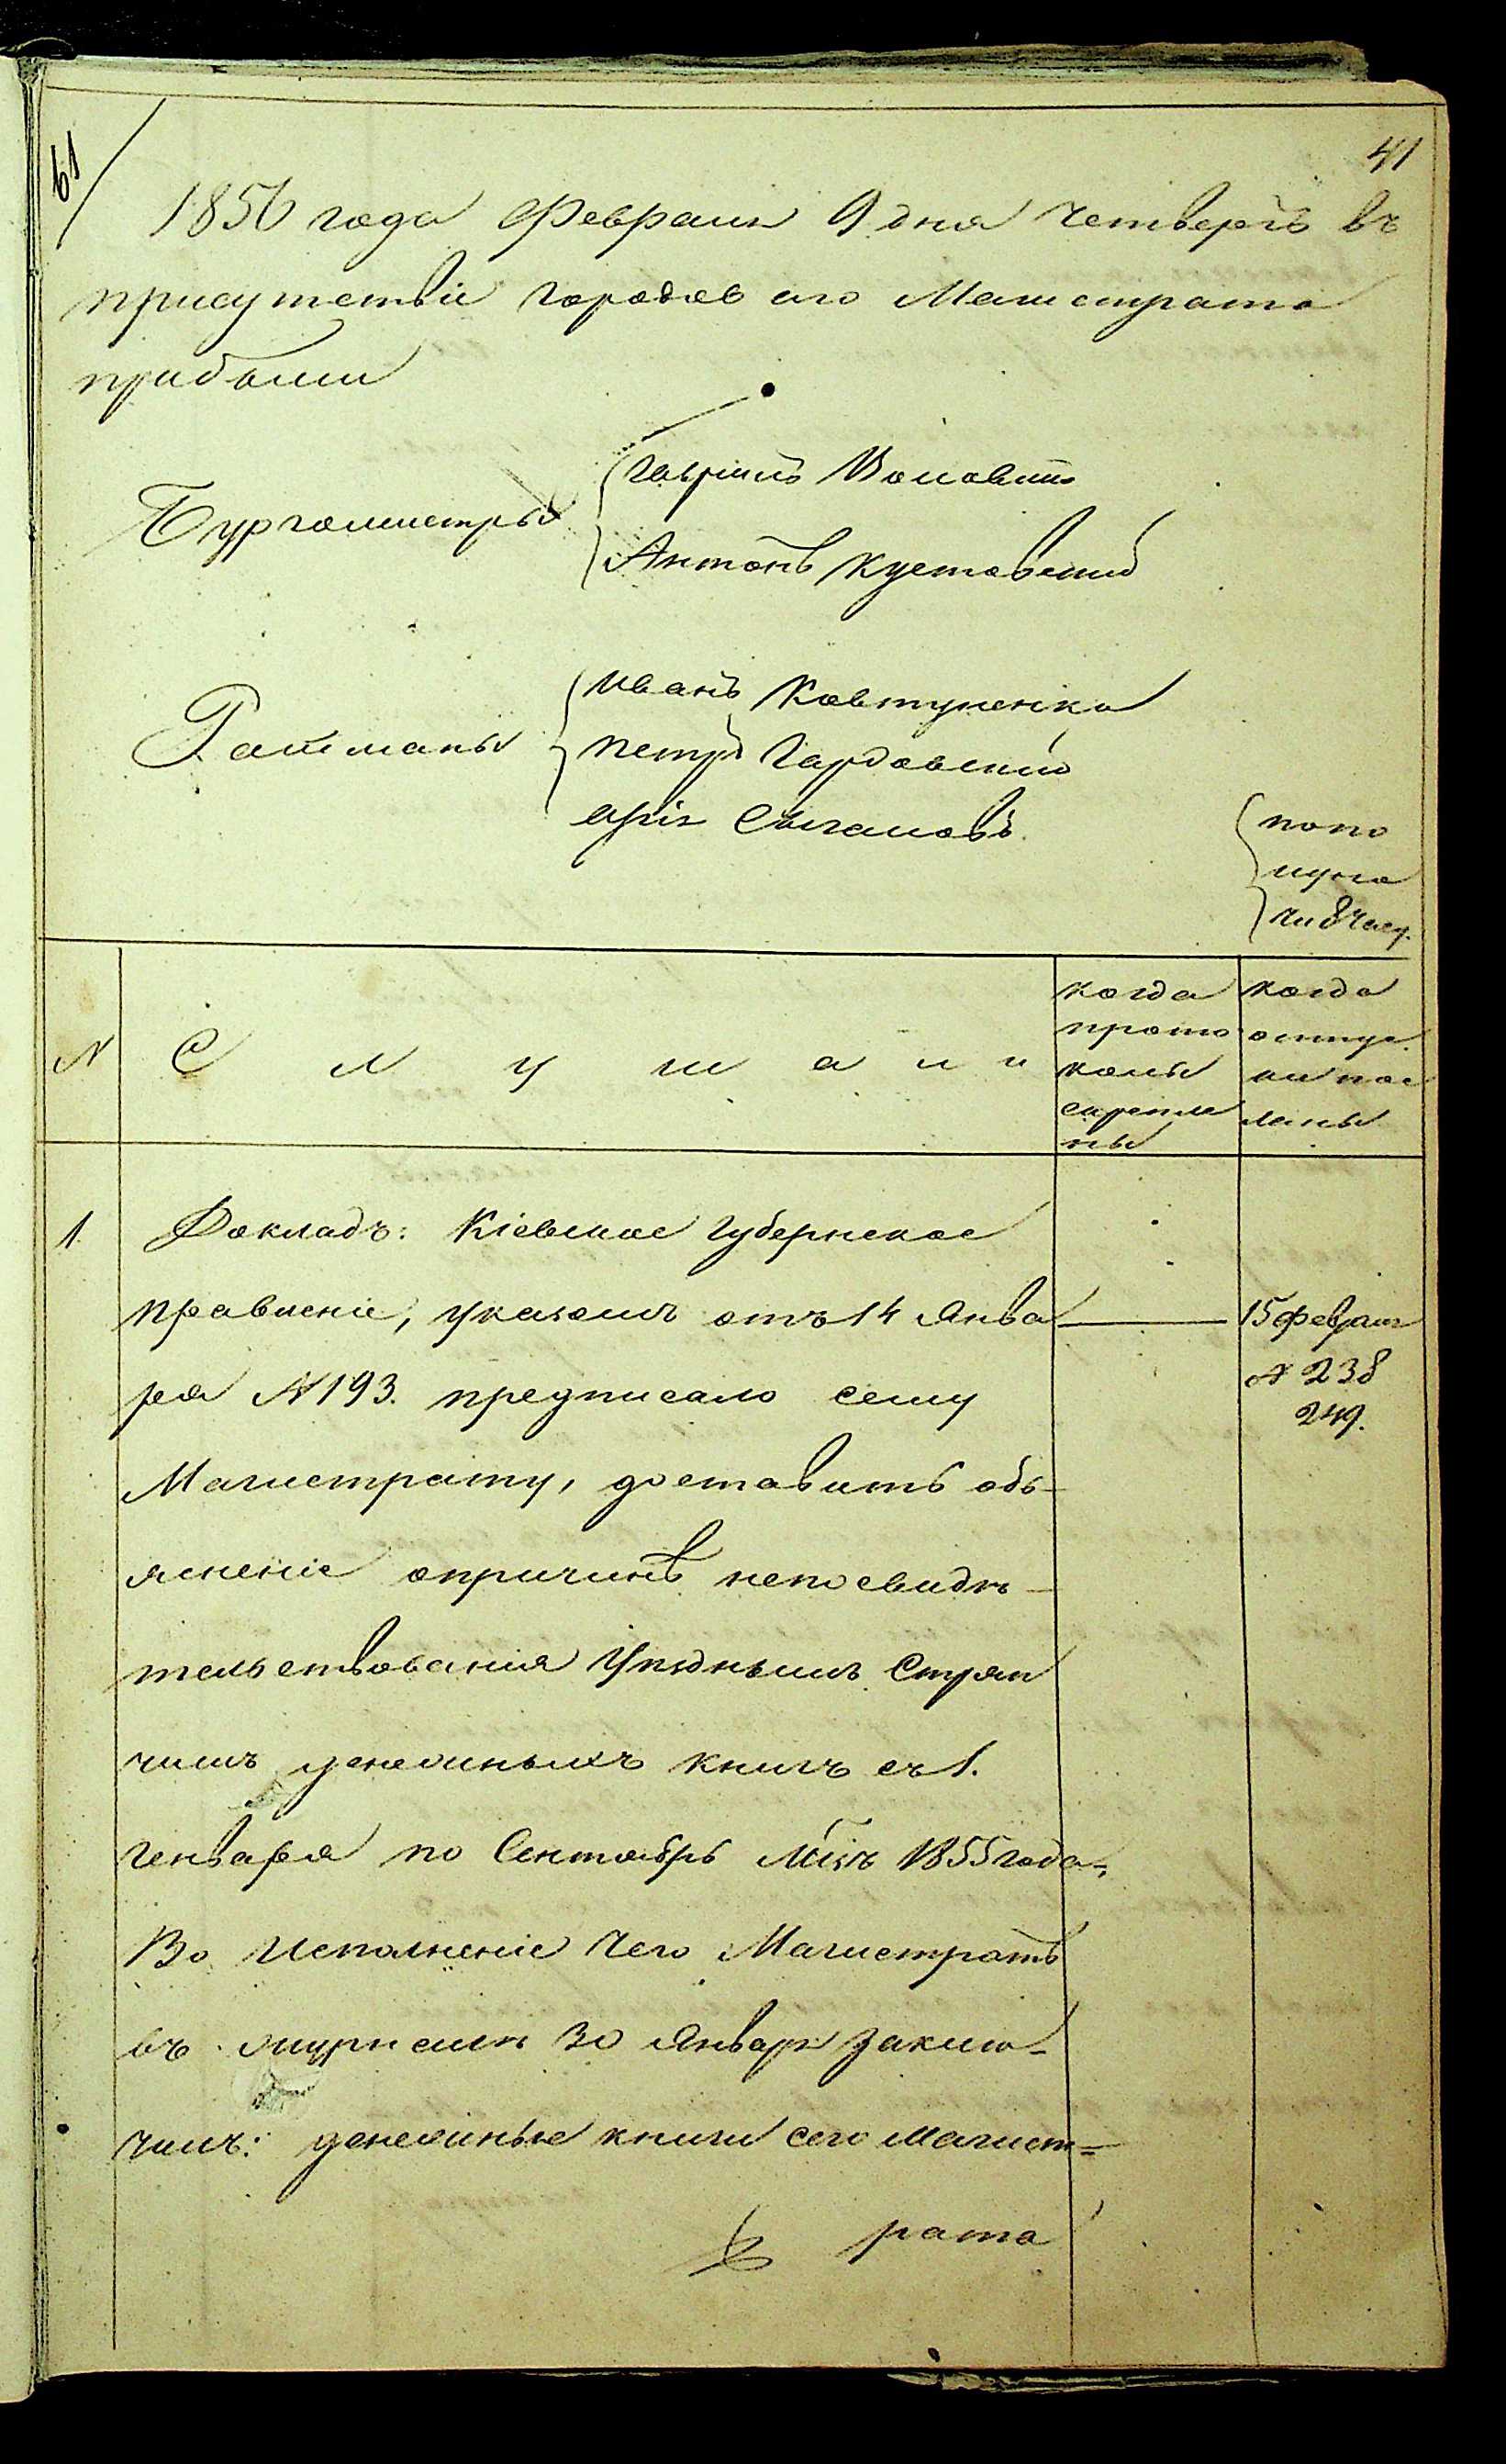 61
41
1856 года Февраля 9 дня четвергъ въ
присутствіе городов аго Магистрата
прибыли
Бургомистры
Гавриилъ
Антонъ Кустовский
Ратманы
Иванъ Ковтуненко
Петръ Гардовский
попо
луно
чи 8 час.
N
Слушали
когда прото колы скрепле ны
когда отпус ки пос ланы
1.
Докладъ: Кіевское Губернское
Правленіе, указомъ отъ 14 Янва
15 февраля
ря N 193. предписало сему
N 238
249.
Магистрату, доставить объ-
ясненіе опричинѣ непосвидѣ-
тельствованія Уѣзднымъ Стряп
чимъ денежныхъ книгъ съ 1.
Генваря по Сентябрь 1855 года,
Во Исполненіе чего Магистратъ
въ журналѣ 30 Января заклю-
чилъ: денежные книги сего Магист=
рата